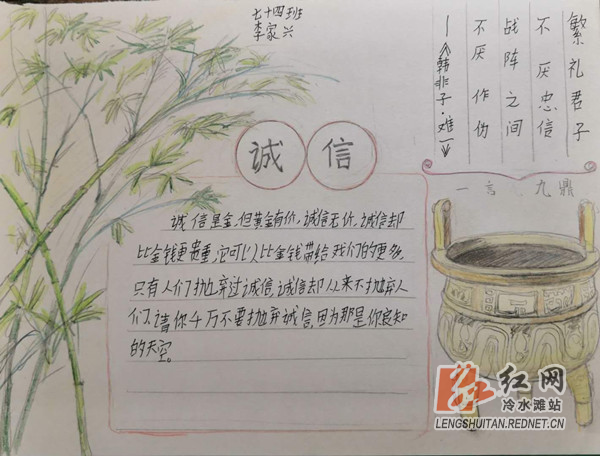 七十四班
李家兴
繁礼君子
不厌忠信
战阵之间
不厌作伪
——《韩非子·难一》
诚信
一言九鼎
诚信是金,但黄金有价,诚信无价。诚信却
比金钱更贵重,它可以比金钱带给我们的更多。
只有人们抛弃过诚信,诚信却从来不抛弃人
们,请你千万不要抛弃诚信,因为那是你良知
的天空。
红网
冷水滩站
LENGSHUITAN.REDNET.CN